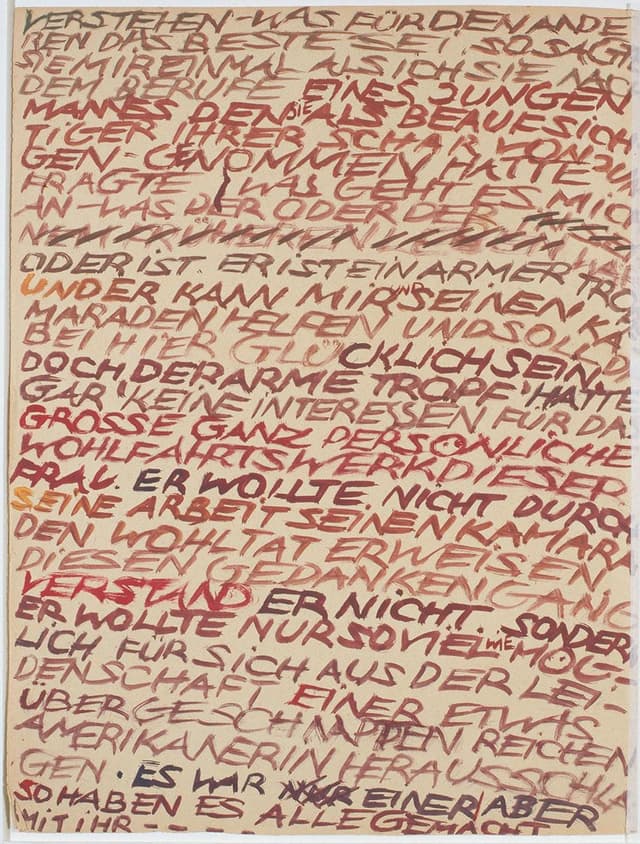 VERSTEHEN - WAS FÜR DEN ANDE
REN DAS BESTE SEI SO SAGT
SIE MIR EINMAL ALS ICH SIE NAC
DEM BERUFE EINES JUNGEN
MANNES DEN SIE ALS BEAUFSICH
TIGER IHRER SCHAR VON JU
GEN - GENOMMEN HATTE
FRAGTE WAS GEHT ES MIC
AN - WAS DER ODER DER
ODER IST ER IST EIN ARMER TRO
UND ER KANN MIR UND SEINEN KA
MARADEN HELFEN UND SOLL D
BEI HIER GLÜCKLICH SEIN
DOCH DER ARME TROPF HATTE
GAR KEINE INTERESSEN FÜR DA
GROSSE GANZ PERSÖNLICHE
WOHLFAHRTSWERK DIESER
FRAU. ER WOLLTE NICHT DURCH
SEINE ARBEIT SEINEN KAMARA
DEN WOHLTAT ERWEISEN
DIESEN GEDANKENGANG
VERSTAND ER NICHT. SONDER
ER WOLLTE NUR SO VIEL WIE MÖG-
LICH FÜR SICH AUS DER LEI-
DENSCHAF EINER ETWAS
ÜBERGESCHNAPPTEN REICHEN
AMERIKANERIN HERAUSSCHLA
GEN. ES WAR NUR EINER ABER
SO HABEN ES ALLE GEMACHT
MIT IHR - - - -